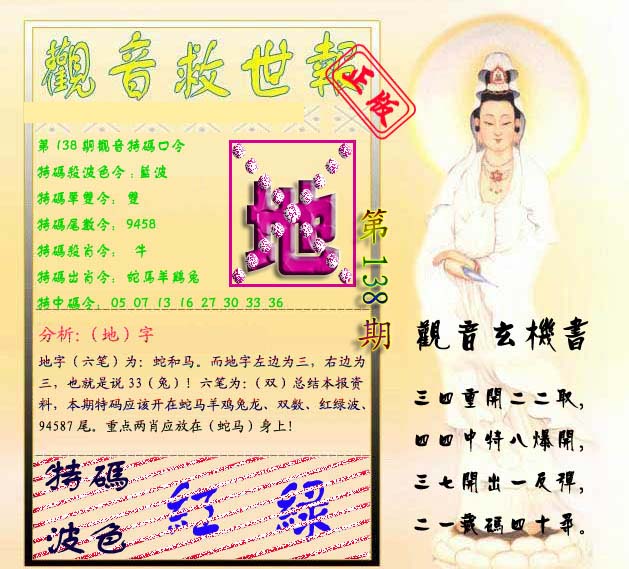 觀音救世報
正版
第138期觀音特碼口令
特碼殺波色令:藍波
特碼單雙令: 雙
特碼尾數令: 9458
特碼殺肖令: 牛
特碼出肖令: 蛇馬羊鷄兔
特中碼令: 05 07 13 16 27 30 33 36
地
第138期
分析:（地）字
地字（六笔）为：蛇和马。而地字左边为三，右边为
三，也就是说33（兔）！六笔为：（双）总结本报资
料，本期特码应该开在蛇马羊鸡兔龙、双数、红绿波、
94587尾。重点两肖应放在（蛇马）身上！
特碼
波色
紅 綠
觀音玄機書
三四重開二二取，
四四中特八爆開，
三七開出一反彈，
二一載碼四十尋。